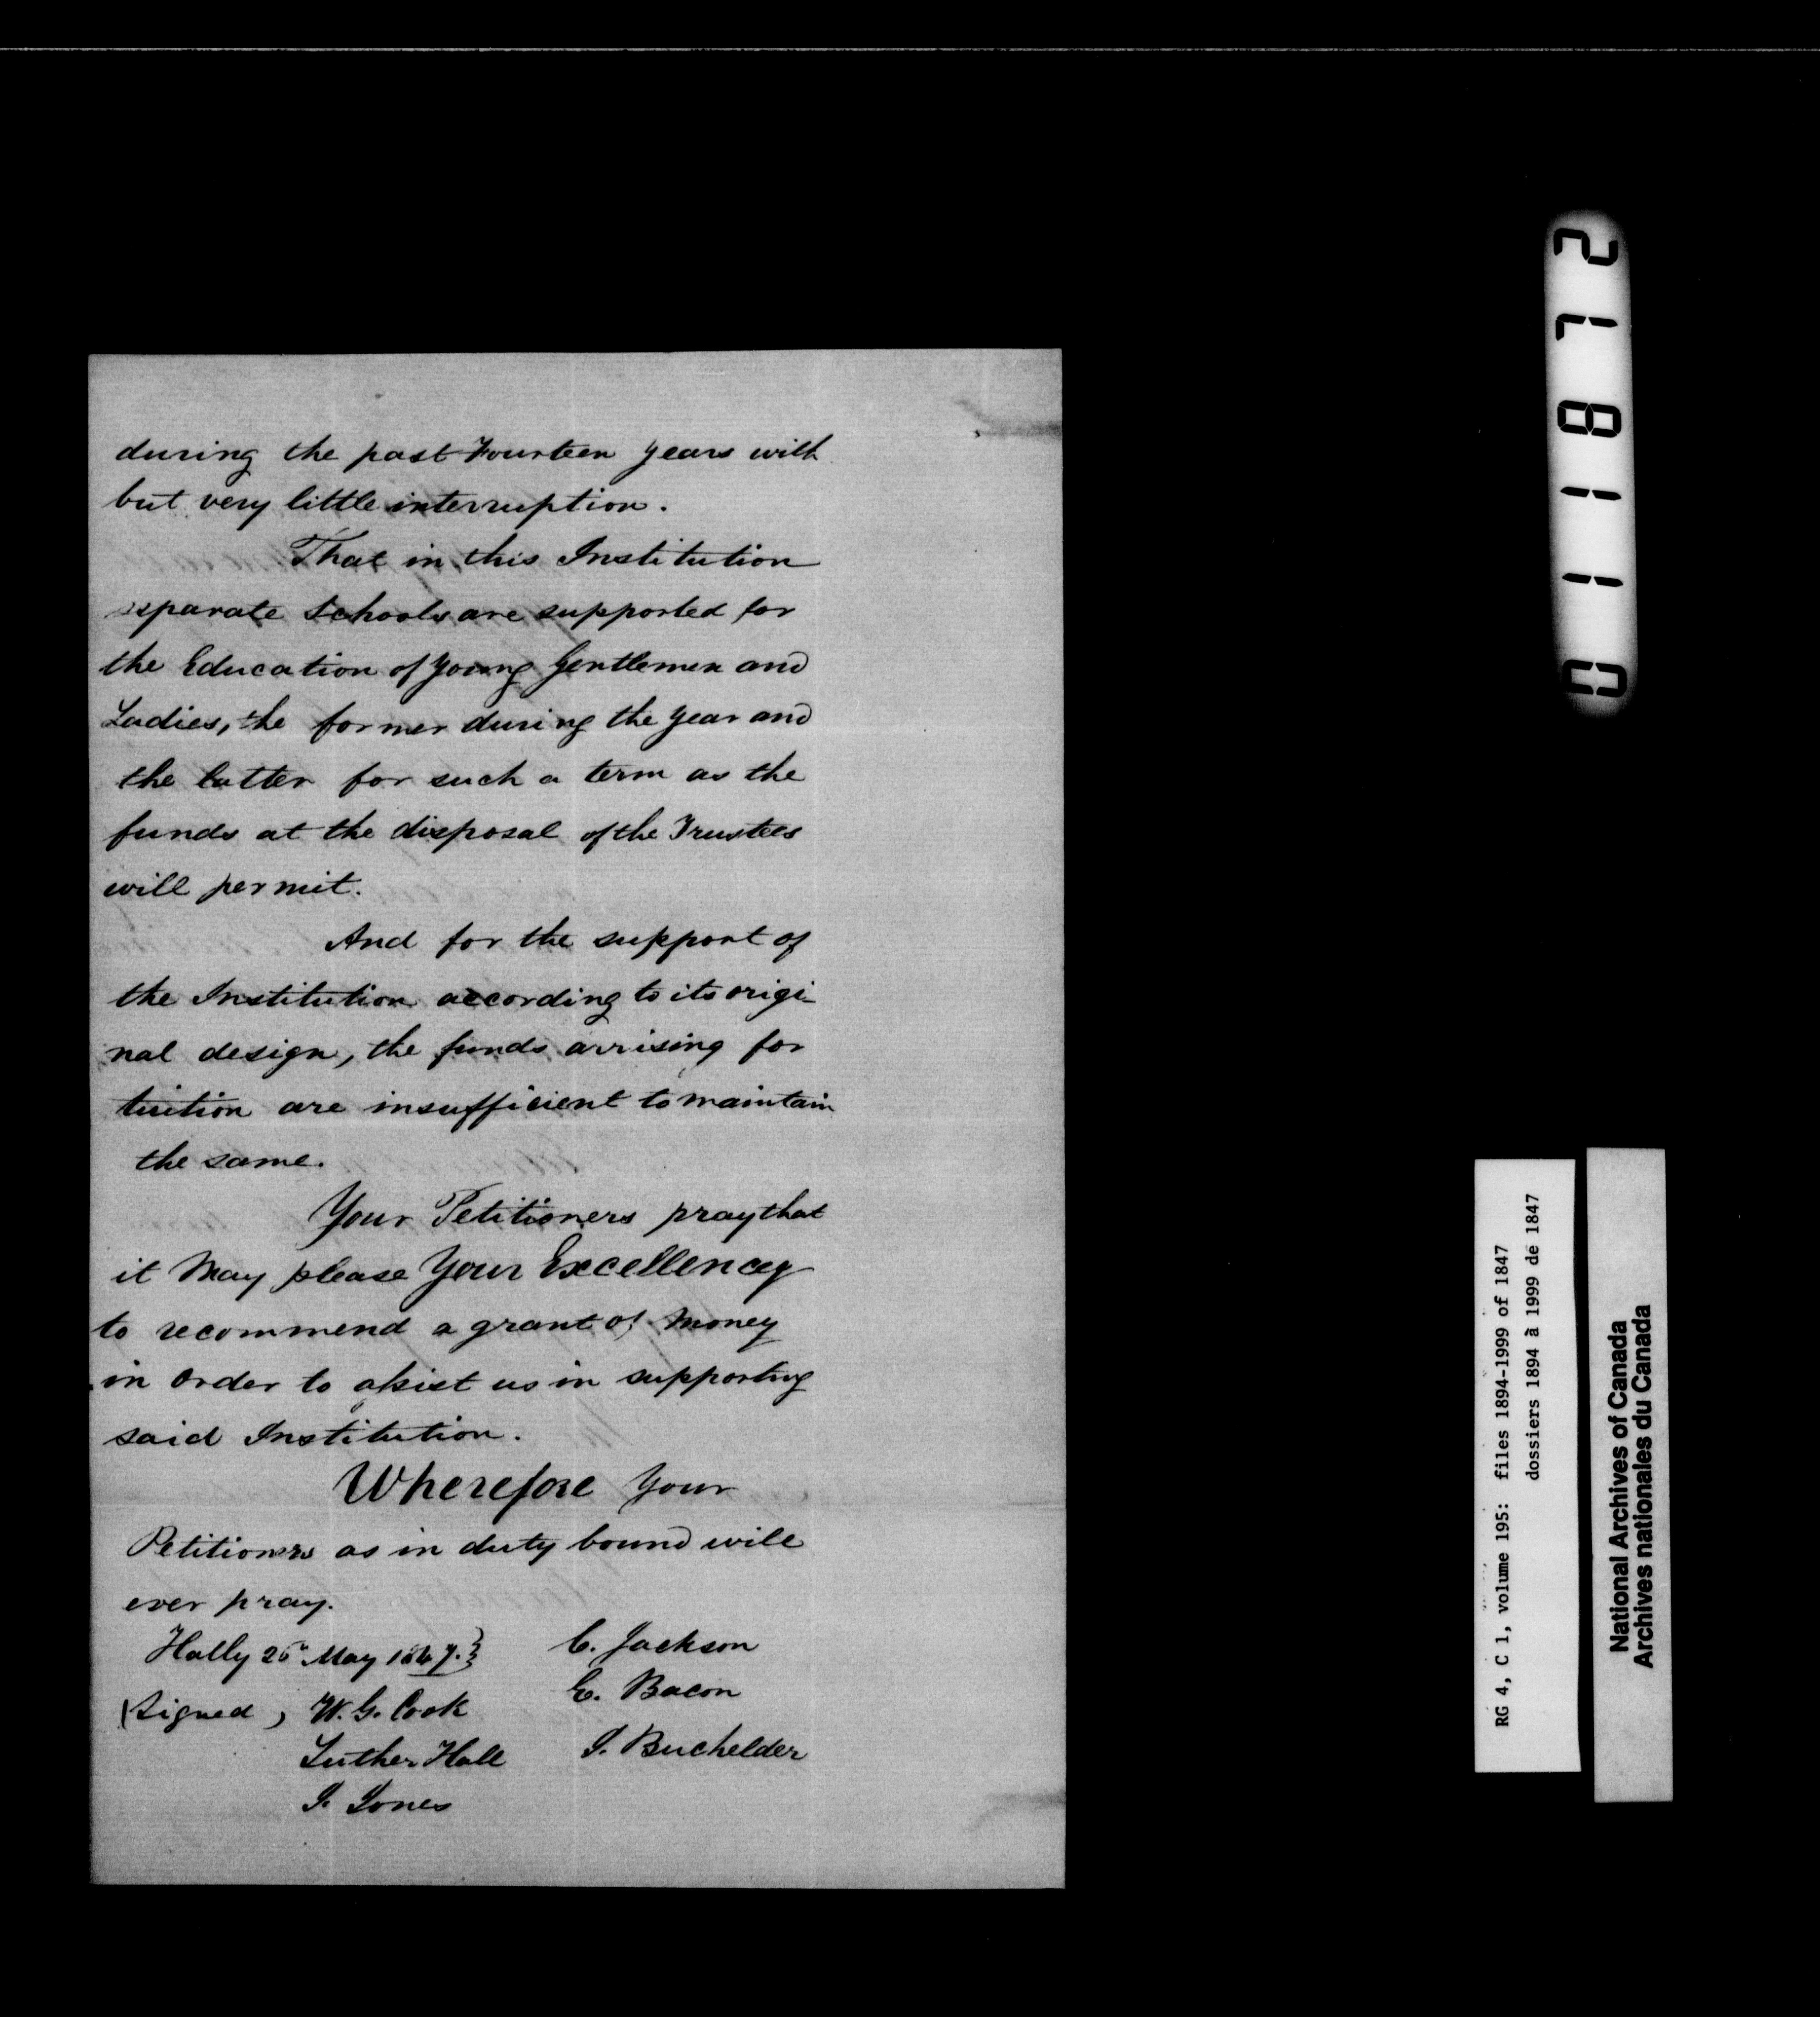 during the past Fourteen years with
but very little interruption.
That in this Institution
separate Schools are supported for
the Education of Young Gentlemen and
Ladies, the former during the year and
the latter for such a term as the
funds at the disposal of the Trustees
will permit.
And for the support of
the Institution according to its origi-
nal design, the funds arrising for
tuition are insufficient to maintain
the same.
Your Petitioners pray that
it May please Your Excellency
to recommend a grant of Money
in Order to assist us in supporting
said Institution.
Wherefore Your
Petitioners as in duty bound will
ever pray.
May 1847.}
(Signed) W. G. Cook
Luther Hall
I. Jones
C. Jackson
E. Bacon
I. Buchelder
011872
RG 4, C 1, volume 195: files 1894-1999 of 1847
dossiers 1894 à 1999 de 1847
National Archives of Canada
Archives nationales du Canada